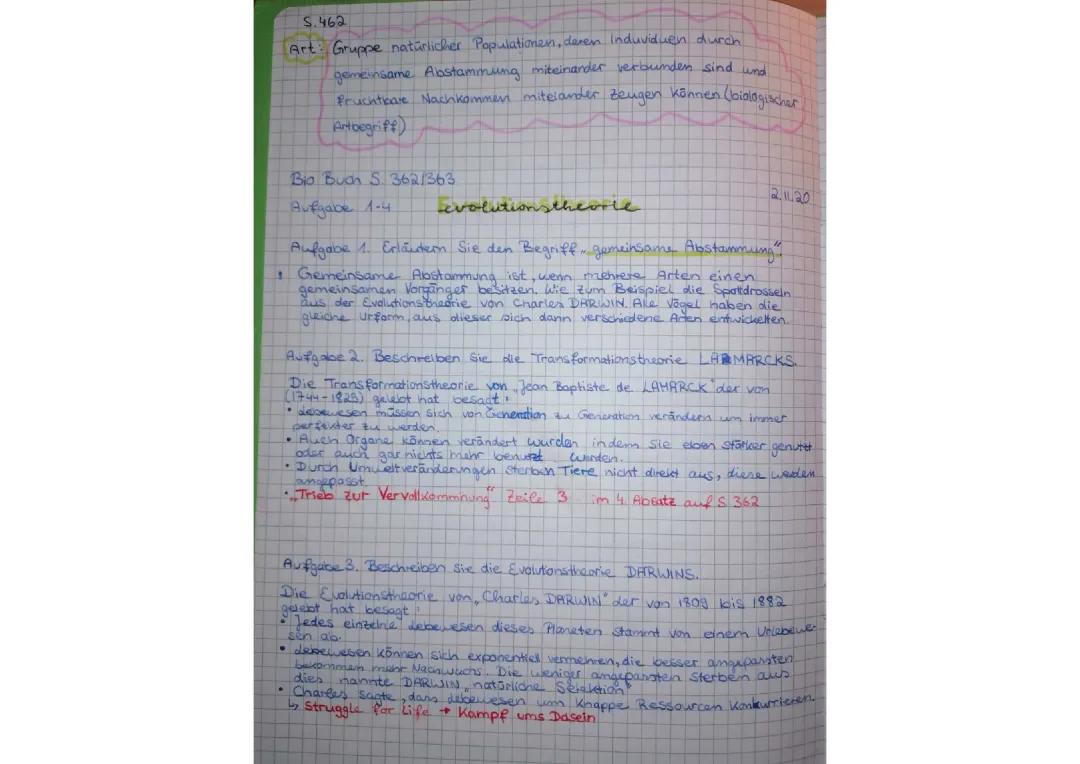 S.462
Art: Gruppe natürlicher Populationen, deren Induviduen durch
gemeinsame Abstammung miteinander verbunden sind und
fruchtbare Nachkommen miteiander zeugen können (biologischer
Artbegriff)
Bio Buch S. 362/363
2.11.20
Aufgabe 1-4 Evolutionstheorie
Aufgabe 1. Erläutern Sie den Begriff „gemeinsame Abstammung".
Gemeinsame Abstammung ist, wenn mehrere Arten einen
gemeinsamen Vorgänger besitzen. Wie zum Beispiel die Spottdrosseln
aus der Evolutionstheorie von Charles DARWIN. Alle Vögel haben die
gleiche Urform, aus dieser sich dann verschiedene Arten entwickelten.
Aufgabe 2. Beschreiben Sie die Transformationstheorie LAMARCKS.
Die Transformationstheorie von „Jean Baptiste de LAMARCK" der von
(1744-1829) gelebt hat besagt:
• Lebewesen müssen sich von Generation zu Generation verändern um immer
perfekter zu werden.
• Auch Organe können verändert wurden, indem sie eben stärker genutzt
oder auch gar nichts mehr benutzt werden.
• Durch Umweltveränderungen sterben Tiere nicht direkt aus, diese werden
angepasst.
• „Trieb zur Vervollkommnung" Zeile 3 im 4. Absatz auf S 362
Aufgabe 3. Beschreiben Sie die Evolutonstheorie DARWINS.
Die Evolutionstheorie von „Charles DARWIN" der von 1809 bis 1882
gelebt hat besagt:
• Jedes einzelne Lebewesen dieses Planeten stammt von einem Urlebewe-
sen ab.
• Lebewesen können sich exponentiell vermehren, die besser angepassten
bekommen mehr Nachwuchs. Die weniger angepassten sterben aus
dies nannte DARWIN „natürliche Selektion"
• Charles sagte, dass Lebewesen um knappe Ressourcen konkurrieren.
↳ Struggle for Life → Kampf ums Dasein